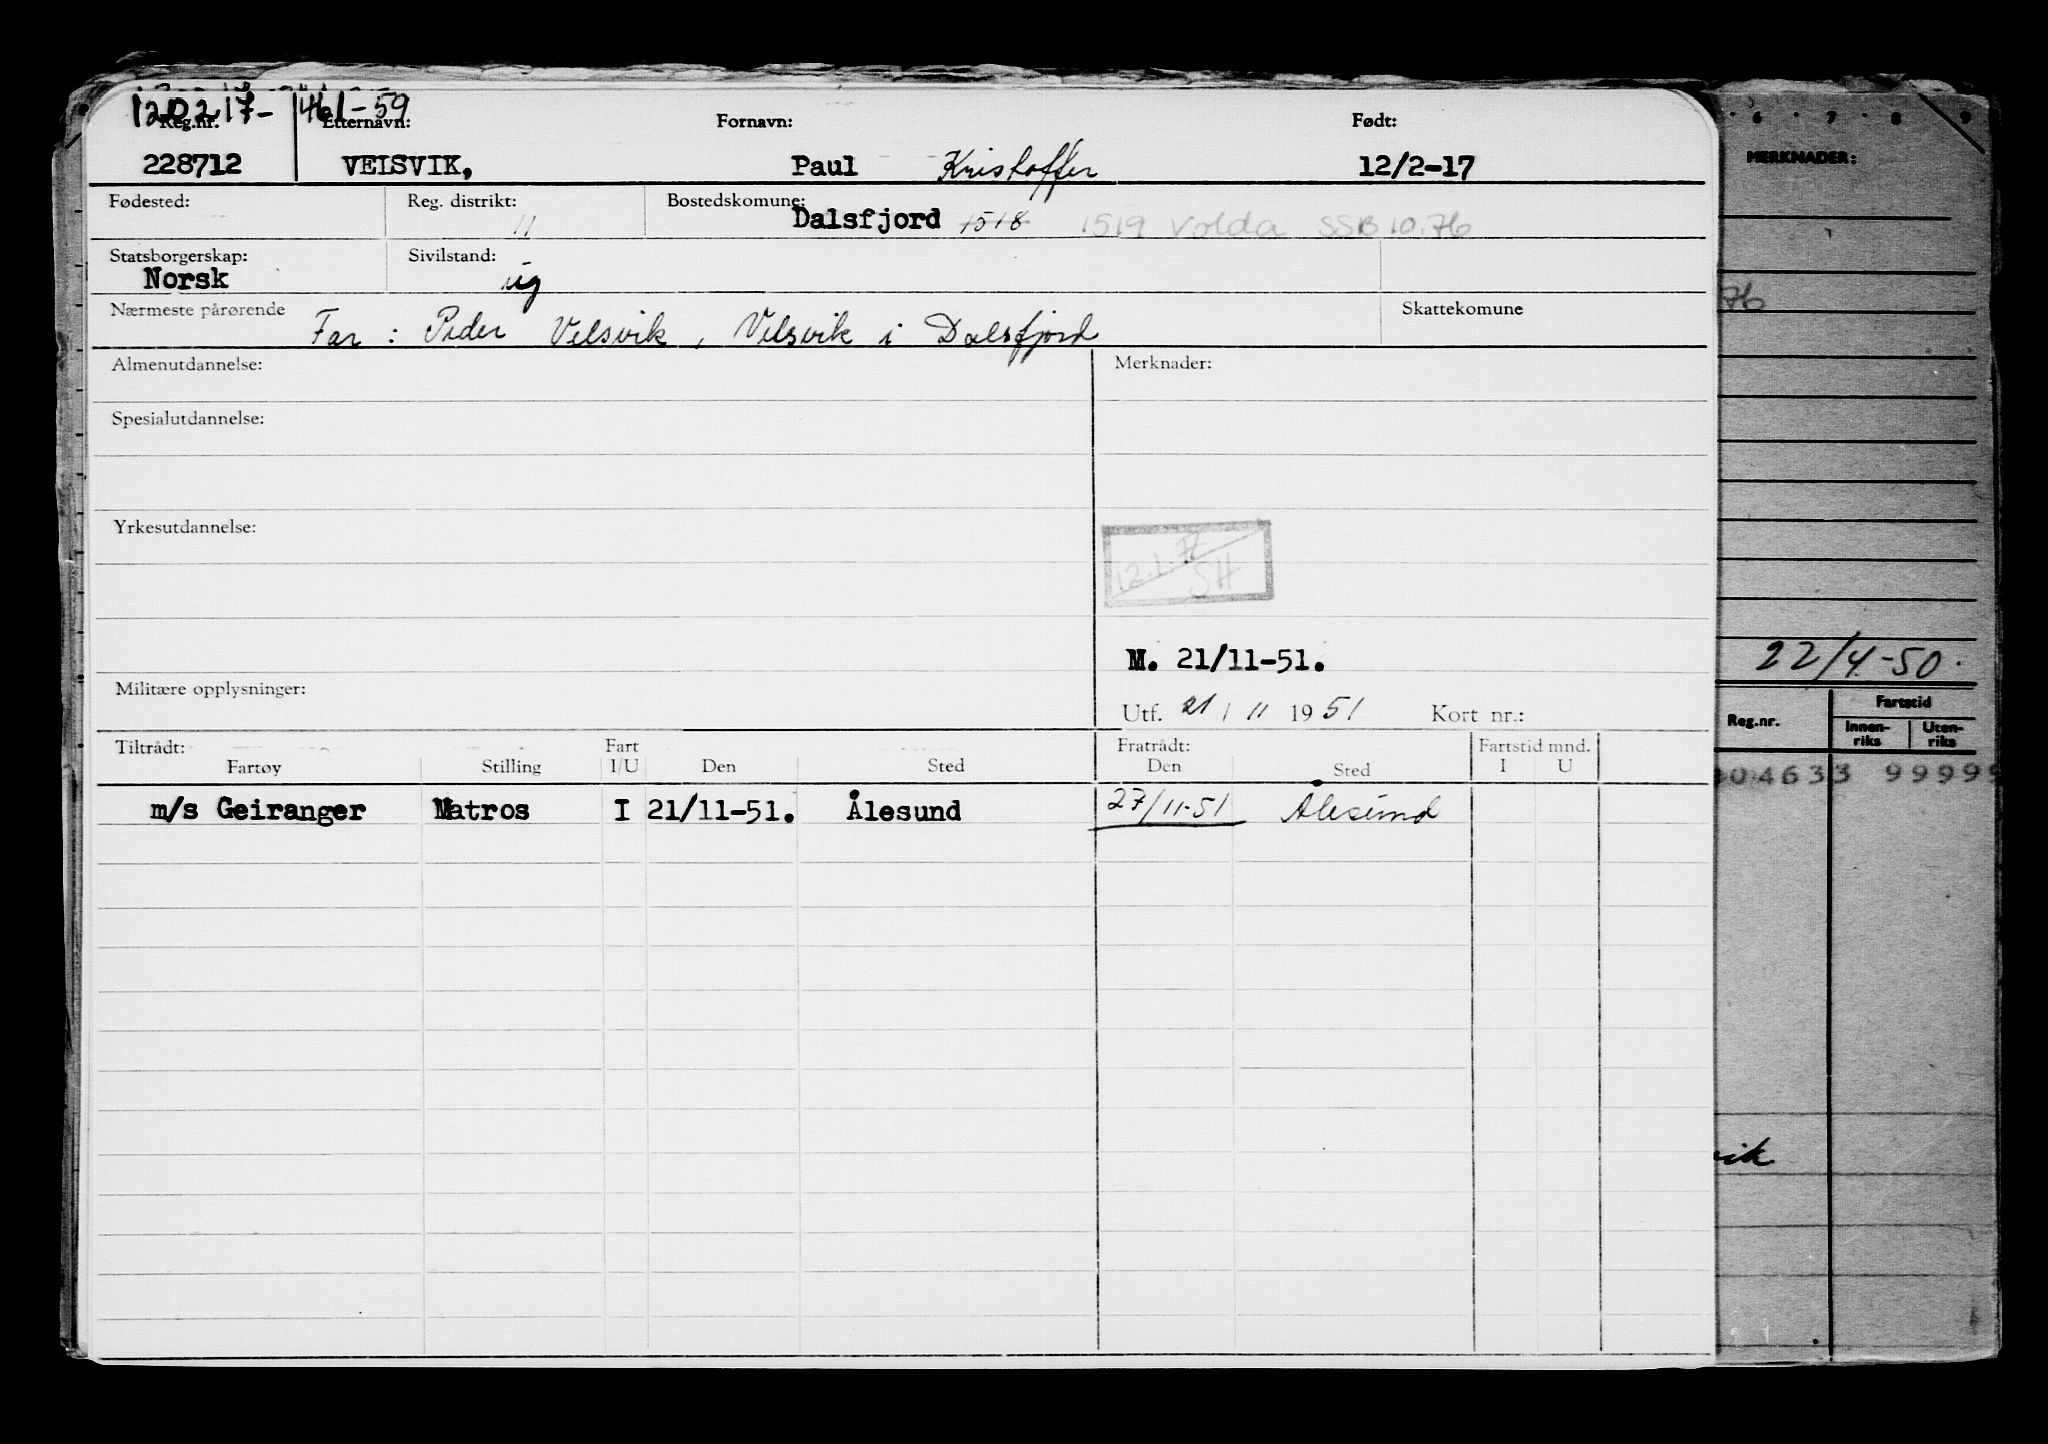 120217- 461-59
Reg.nr. Etternavn: Fornavn: Født:
228712 VELSVIK, Paul Kristoffer 12/2-17
Fødested: Reg. distrikt: 11 Bostedskomune: Dalsfjord 1518 1519 Volda SSB 10.76
Statsborgerskap: Norsk Sivilstand: ug
Nærmeste pårørende Far : Peder Velsvik, Velsvik i Dalsfjord Skattekomune
Almenutdannelse: Merknader:
Spesialutdannelse:
Yrkesutdannelse:
SH
M. 21/11-51.
Militære opplysninger:
Utf. 21 / 11 1951 Kort nr.:
Tiltrådt: Fart Fratrådt: Fartstid mnd.
Fartøy Stilling I/U Den Sted Den Sted I U
m/s Geiranger Matros I 21/11-51. Ålesund 27/11-51 Ålesund
6 7 8 9
MERKNADER:
76
22/4-50.
Reg.nr. Fartstid
Innen-riks Uten-riks
04633 9999
vik